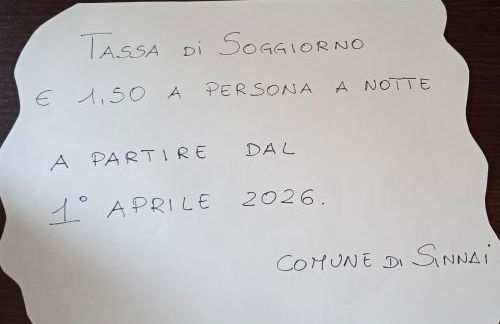 TASSA DI SOGGIORNO
€ 1,50 A PERSONA A NOTTE
A PARTIRE DAL
1° APRILE 2026.
COMUNE DI SINNAI